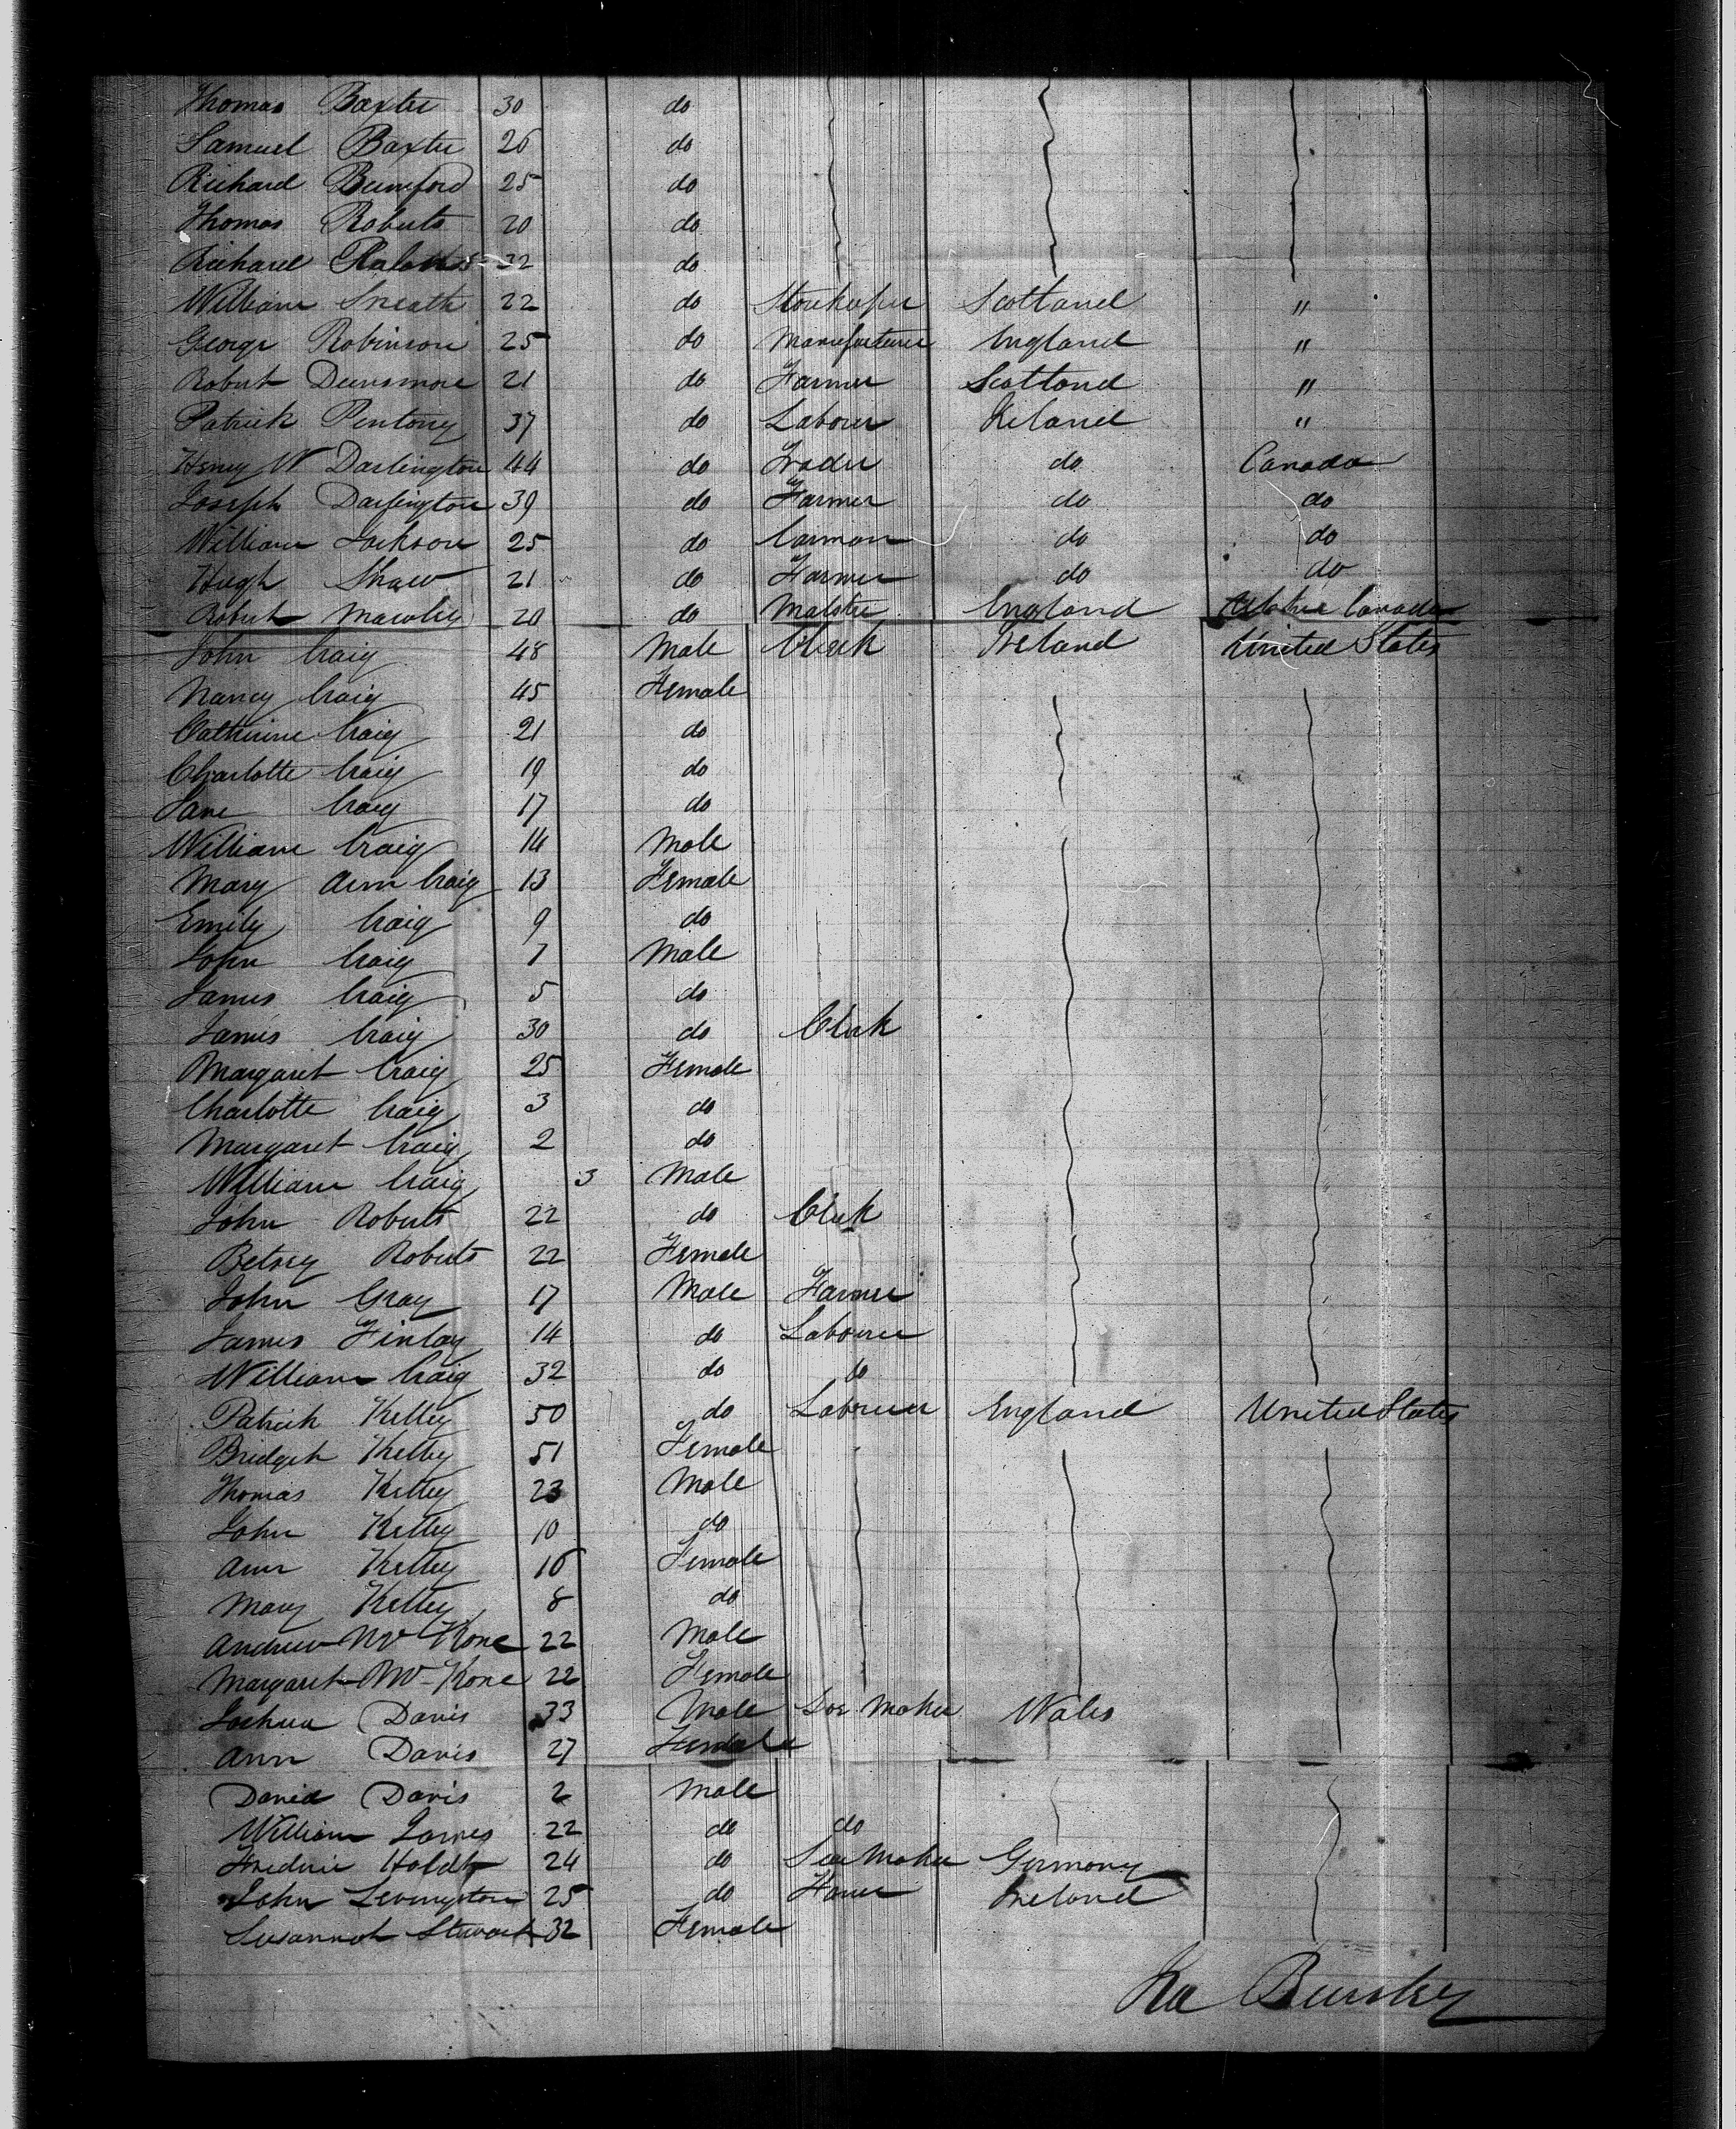 Thomas Baxter 30 do
Samuel Baxter 26 do
Richard Bumford 25 do
Thomas Roberts 20 do
Richard 32 do
William Sneath 22 do Storekeper Scotland "
George Robinson 25 do Manufacturer England "
Robert Dunsmore 21 do Farmer Scotland "
Patrick Pentony 37 do Laborer Ireland "
Henry W Darlington 44 do Trader do Canada
Joseph Darlington 39 do Farmer do do
William Jackson 25 do Carman do do
Hugh Shaw 21 do Farmer do do
Robert Mawley 20 do Malster England Canada
John Craig 48 Male Clerk Ireland United States
Nancy Craig 45 Female
Catherine Craig 21 do
Charlotte Craig 19 do
Jane Craig 17 do
William Craig 14 Male
Mary Ann Craig 13 Female
Emily Craig 9 do
John Craig 7 Male
James Craig 5 do
James Craig 30 do Clerk
Margaret Craig 25 Female
Charlotte Craig 3 do
Margaret Craig 2 do
William Craig 3 Male
John Roberts 22 do Clerk
Betsey Roberts 22 Female
John Gray 17 Male Farmer
James Finlay 14 do Labourer
William Craig 32 do do
Patrick Kelley 50 do Labourer England United States
Bridget Kelley 51 Female
Thomas Kelley 23 Male
John Kelley 10 do
Ann Kelley 16 Female
Mary Kelley 8 do
Andrew Mc Kone 22 Male
Margaret Mc Kone 22 Female
Joshua Davis 33 Male Maker Wales
Ann Davis 27 Female
David Davis 2 Male
William James 22 do do
Frederic Holdt 24 do Maker Germany
John Levingston 25 do Ireland
Susannah Stewart 32 Female
Ira Bursley